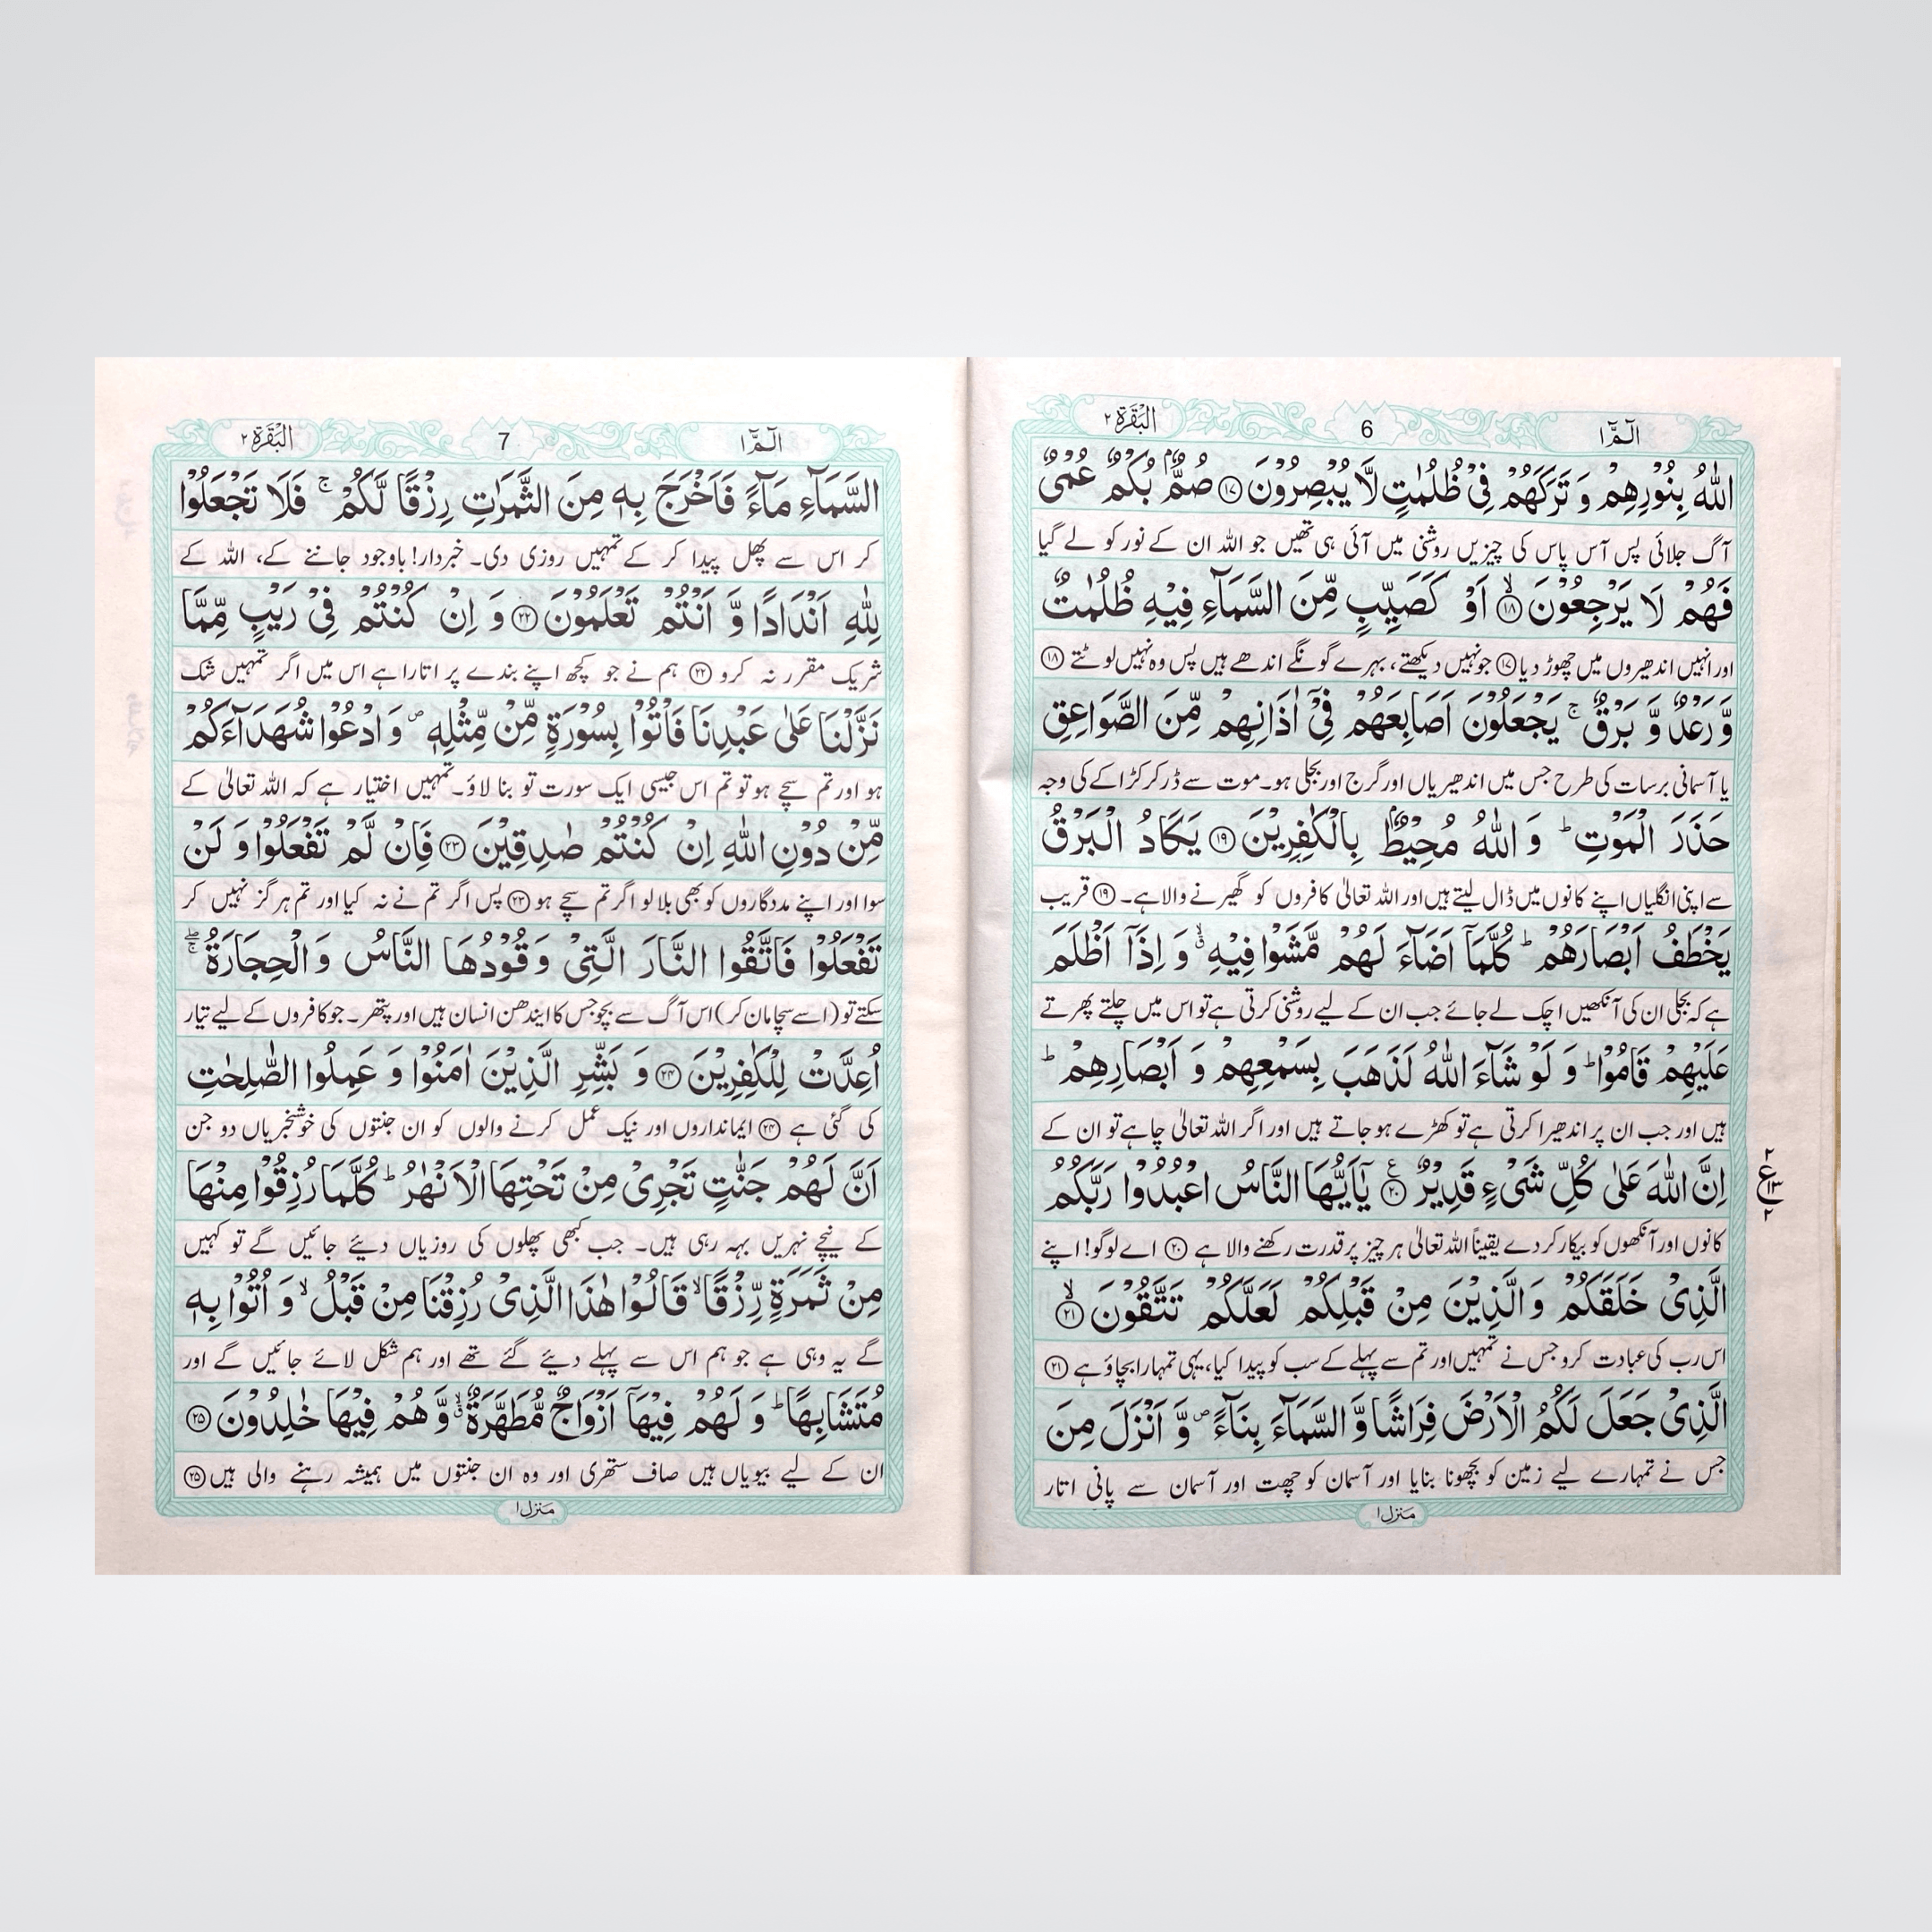 الٓمّٓ ١
6
البقرة ٢
اللّٰهُ بِنُوْرِهِمْ وَ تَرَكَهُمْ فِیْ ظُلُمٰتٍ لَّا یُبْصِرُوْنَ ۝۱۷ صُمٌّۢ بُكْمٌ عُمْیٌ
آگ جلائی پس آس پاس کی چیزیں روشنی میں آئی ہی تھیں جو اللہ ان کے نور کو لے گیا
فَهُمْ لَا یَرْجِعُوْنَ ۝۱۸ۙ اَوْ كَصَیِّبٍ مِّنَ السَّمَآءِ فِیْهِ ظُلُمٰتٌ
اور انہیں اندھیروں میں چھوڑ دیا ۝۱۷ جو نہیں دیکھتے، بہرے گونگے اندھے ہیں پس وہ نہیں لوٹتے ۝۱۸
وَّ رَعْدٌ وَّ بَرْقٌ ۚ یَجْعَلُوْنَ اَصَابِعَهُمْ فِیْۤ اٰذَانِهِمْ مِّنَ الصَّوَاعِقِ
یا آسمانی برسات کی طرح جس میں اندھیریاں اور گرج اور بجلی ہو۔ موت سے ڈر کر کڑاکے کی وجہ
حَذَرَ الْمَوْتِ ؕ وَ اللّٰهُ مُحِیْطٌۢ بِالْكٰفِرِیْنَ ۝۱۹ یَكَادُ الْبَرْقُ
سے اپنی انگلیاں اپنے کانوں میں ڈال لیتے ہیں اور اللہ تعالیٰ کافروں کو گھیرنے والا ہے۔ ۝۱۹ قریب
یَخْطَفُ اَبْصَارَهُمْ ؕ كُلَّمَاۤ اَضَآءَ لَهُمْ مَّشَوْا فِیْهِ ۙۗ وَ اِذَاۤ اَظْلَمَ
ہے کہ بجلی ان کی آنکھیں اچک لے جائے جب ان کے لیے روشنی کرتی ہے تو اس میں چلتے پھرتے
عَلَیْهِمْ قَامُوْا ؕ وَ لَوْ شَآءَ اللّٰهُ لَذَهَبَ بِسَمْعِهِمْ وَ اَبْصَارِهِمْ ؕ
ہیں اور جب ان پر اندھیرا کرتی ہے تو کھڑے ہو جاتے ہیں اور اگر اللہ تعالیٰ چاہے تو ان کے
اِنَّ اللّٰهَ عَلٰی كُلِّ شَیْءٍ قَدِیْرٌ ۝۲۰ع یٰۤاَیُّهَا النَّاسُ اعْبُدُوْا رَبَّكُمُ
کانوں اور آنکھوں کو بیکار کر دے یقیناً اللہ تعالیٰ ہر چیز پر قدرت رکھنے والا ہے ۝۲۰ اے لوگو! اپنے
الَّذِیْ خَلَقَكُمْ وَ الَّذِیْنَ مِنْ قَبْلِكُمْ لَعَلَّكُمْ تَتَّقُوْنَ ۝۲۱ۙ
اس رب کی عبادت کرو جس نے تمہیں اور تم سے پہلے کے سب کو پیدا کیا، یہی تمہارا بچاؤ ہے ۝۲۱
الَّذِیْ جَعَلَ لَكُمُ الْاَرْضَ فِرَاشًا وَّ السَّمَآءَ بِنَآءً ۪ وَّ اَنْزَلَ مِنَ
جس نے تمہارے لیے زمین کو بچھونا بنایا اور آسمان کو چھت اور آسمان سے پانی اتار
منزل ١
٢ ع ٢
الٓمّٓ ١
7
البقرة ٢
السَّمَآءِ مَآءً فَاَخْرَجَ بِهٖ مِنَ الثَّمَرٰتِ رِزْقًا لَّكُمْ ۚ فَلَا تَجْعَلُوْا
کر اس سے پھل پیدا کر کے تمہیں روزی دی۔ خبردار! باوجود جاننے کے، اللہ کے
لِلّٰهِ اَنْدَادًا وَّ اَنْتُمْ تَعْلَمُوْنَ ۝۲۲ وَ اِنْ كُنْتُمْ فِیْ رَیْبٍ مِّمَّا
شریک مقرر نہ کرو ۝۲۲ ہم نے جو کچھ اپنے بندے پر اتارا ہے اس میں اگر تمہیں شک
نَزَّلْنَا عَلٰی عَبْدِنَا فَاْتُوْا بِسُوْرَةٍ مِّنْ مِّثْلِهٖ ۪ وَ ادْعُوْا شُهَدَآءَكُمْ
ہو اور تم سچے ہو تو تم اس جیسی ایک سورت تو بنا لاؤ۔ تمہیں اختیار ہے کہ اللہ تعالیٰ کے
مِّنْ دُوْنِ اللّٰهِ اِنْ كُنْتُمْ صٰدِقِیْنَ ۝۲۳ فَاِنْ لَّمْ تَفْعَلُوْا وَ لَنْ
سوا اور اپنے مددگاروں کو بھی بلا لو اگر تم سچے ہو ۝۲۳ پس اگر تم نے نہ کیا اور تم ہرگز نہیں کر
تَفْعَلُوْا فَاتَّقُوا النَّارَ الَّتِیْ وَقُوْدُهَا النَّاسُ وَ الْحِجَارَةُ ۖۚ
سکتے تو (اسے سچا مان کر) اس آگ سے بچو جس کا ایندھن انسان ہیں اور پتھر۔ جو کافروں کے لیے تیار
اُعِدَّتْ لِلْكٰفِرِیْنَ ۝۲۴ وَ بَشِّرِ الَّذِیْنَ اٰمَنُوْا وَ عَمِلُوا الصّٰلِحٰتِ
کی گئی ہے ۝۲۴ ایمانداروں اور نیک عمل کرنے والوں کو ان جنتوں کی خوشخبریاں دو جن
اَنَّ لَهُمْ جَنّٰتٍ تَجْرِیْ مِنْ تَحْتِهَا الْاَنْهٰرُ ؕ كُلَّمَا رُزِقُوْا مِنْهَا
کے نیچے نہریں بہہ رہی ہیں۔ جب کبھی پھلوں کی روزیاں دیئے جائیں گے تو کہیں
مِنْ ثَمَرَةٍ رِّزْقًا ۙ قَالُوْا هٰذَا الَّذِیْ رُزِقْنَا مِنْ قَبْلُ ۙ وَ اُتُوْا بِهٖ
گے یہ وہی ہے جو ہم اس سے پہلے دیئے گئے تھے اور ہم شکل لائے جائیں گے اور
مُتَشَابِهًا ؕ وَ لَهُمْ فِیْهَاۤ اَزْوَاجٌ مُّطَهَّرَةٌ ۙۗ وَّ هُمْ فِیْهَا خٰلِدُوْنَ ۝۲۵
ان کے لیے بیویاں ہیں صاف ستھری اور وہ ان جنتوں میں ہمیشہ رہنے والی ہیں ۝۲۵
منزل ١